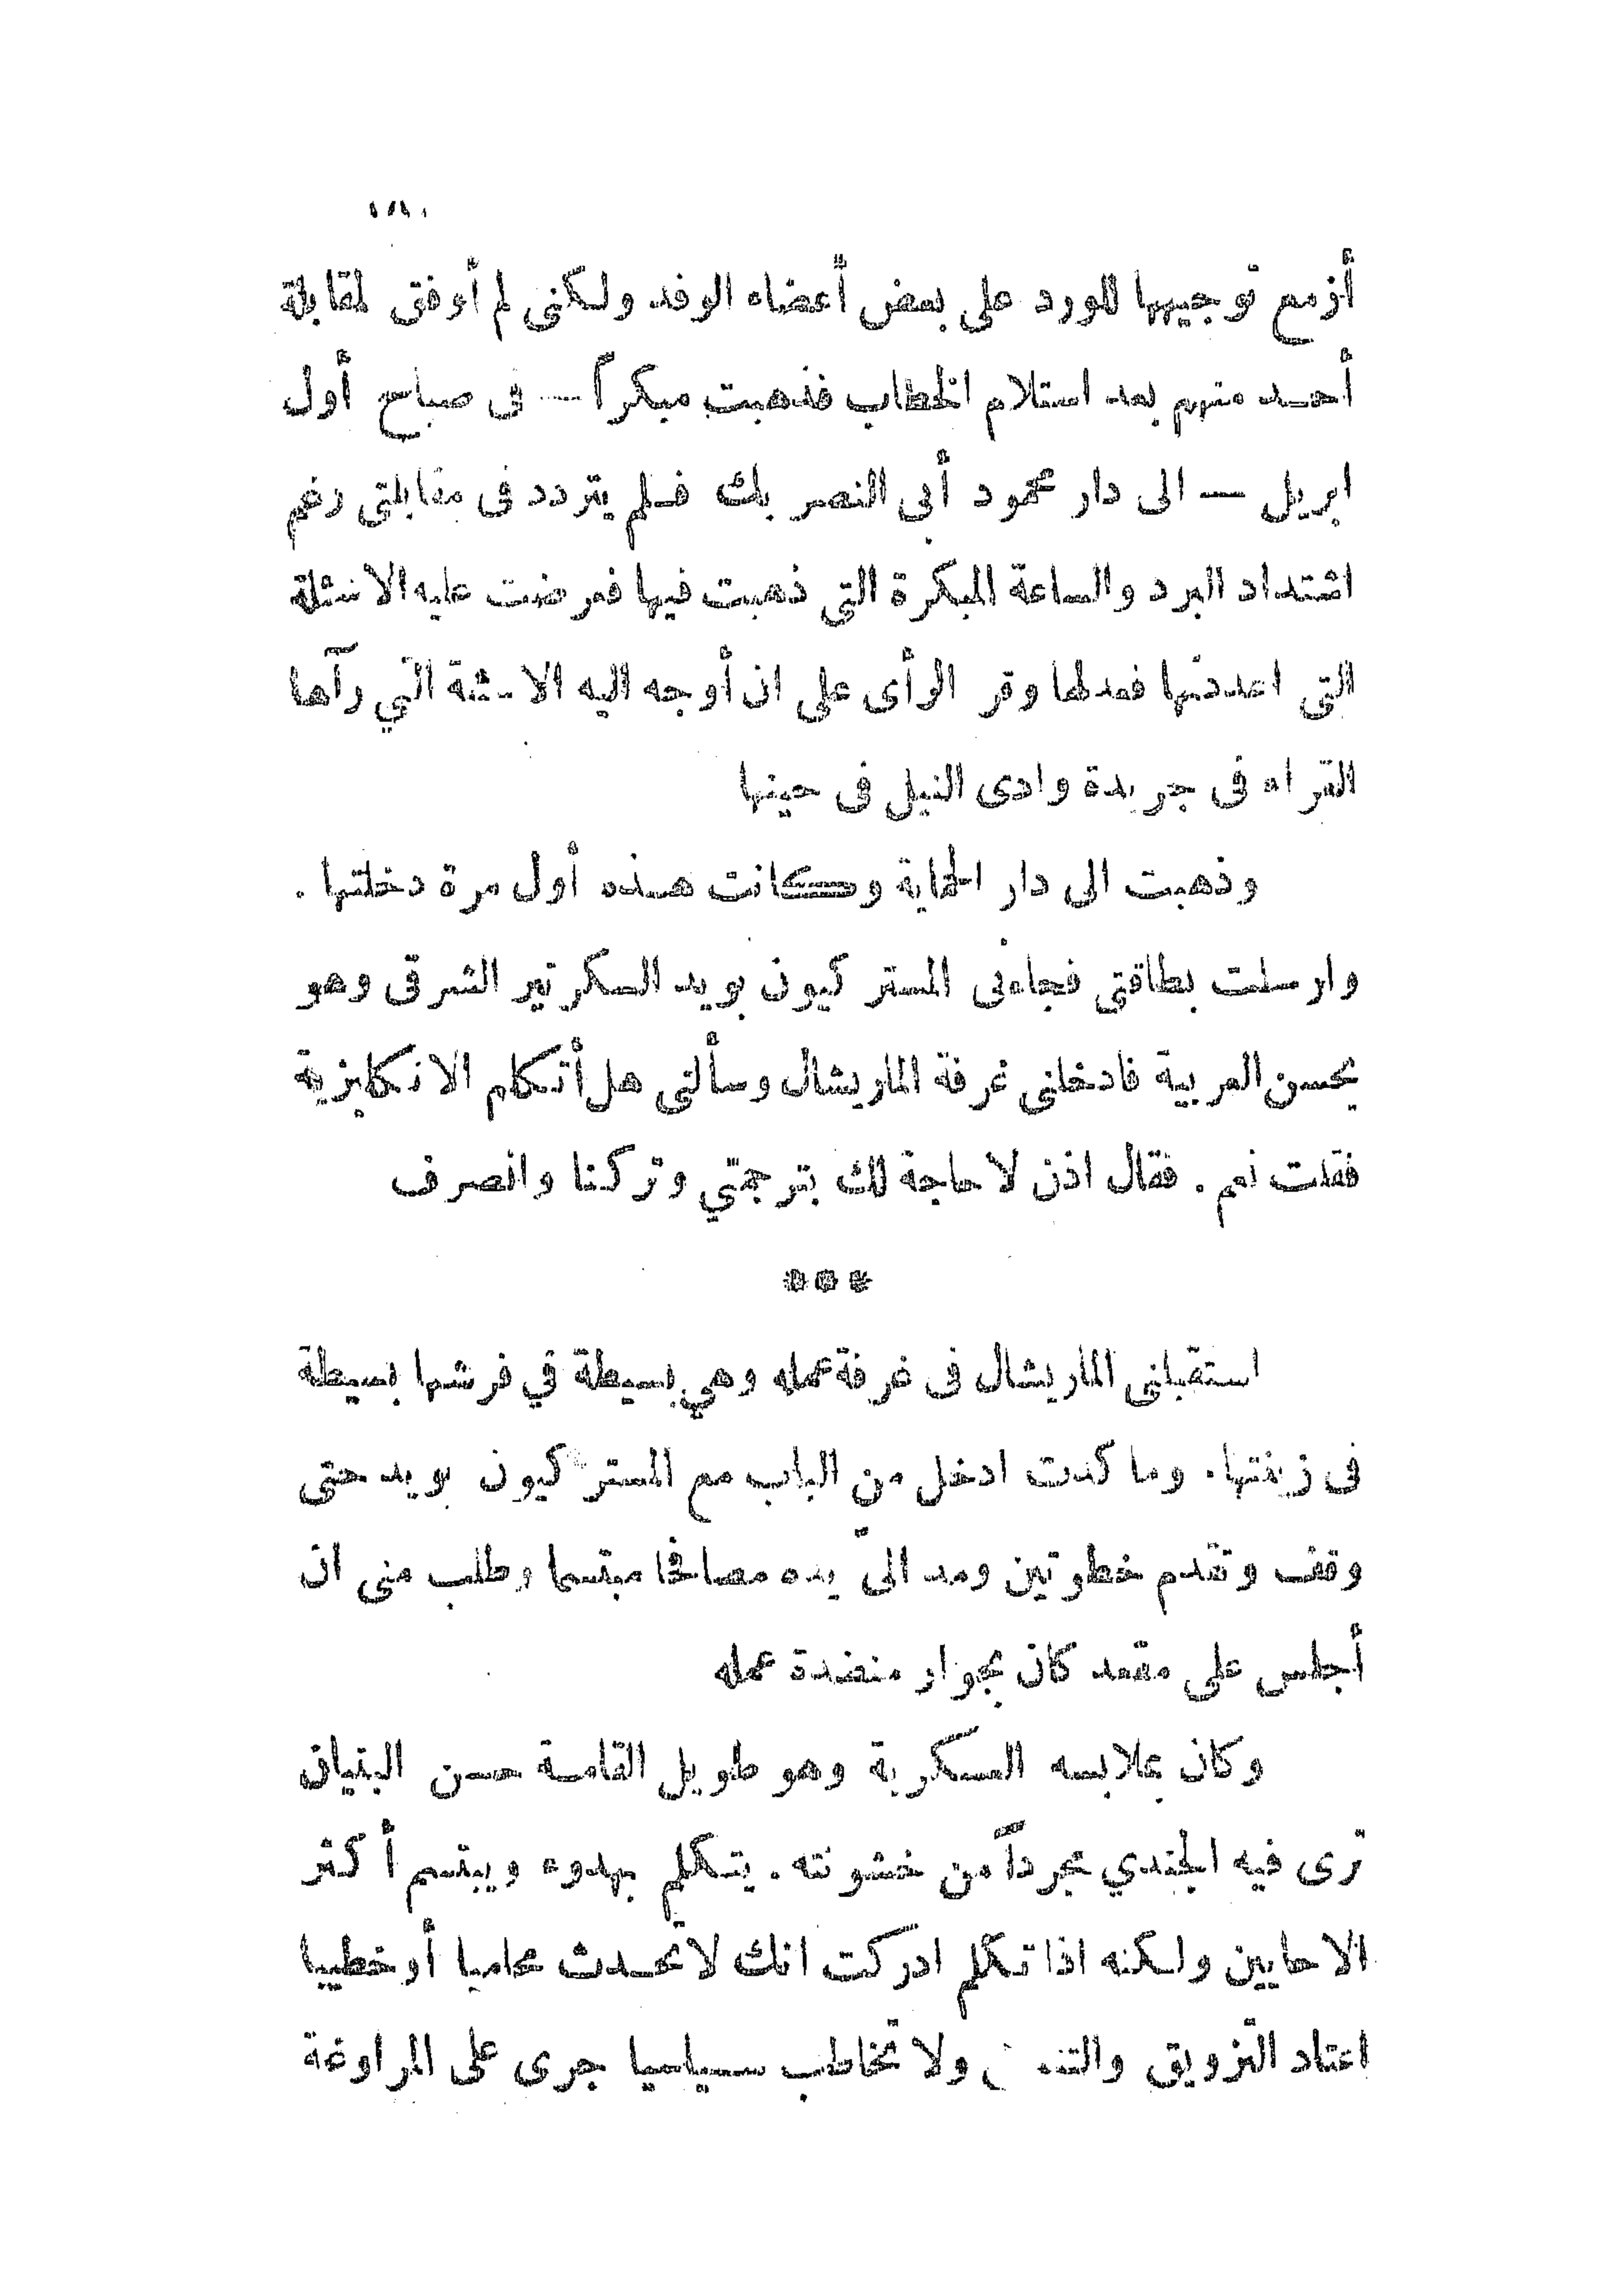 أزمع توجيهها للورد على بعض أعضاء الوفد ولكنى لم أوفق لمقابلة
أحد منهم بعد استلام الخطاب فذهبت مبكراً — فى صباح أول
ابريل — الى دار محمود أبى النصر بك فلم يتردد فى مقابلتى رغم
اشتداد البرد والساعة المبكرة التى ذهبت فيها فعرضت عليه الاسئلة
التى اعددتها فعدلها وقر الرأى على ان أوجه اليه الاسئلة التي رآها
القراء فى جريدة وادى النيل فى حينها
وذهبت الى دار الحماية وكانت هذه أول مرة دخلتها .
وارسلت بطاقتى فجاءنى المستر كيون بويد السكرتير الشرقى وهو
يحسن العربية فادخلنى غرفة الماريشال وسألنى هل أتكلم الانكليزية
فقلت نعم . فقال اذن لا حاجة لك بترجمتي وتركنا وانصرف
***
استقبلنى الماريشال فى غرفة عمله وهي بسيطة في فرشها بسيطة
فى زينتها . وما كدت ادخل من الباب مع المستر كيون بويد حتى
وقف وتقدم خطوتين ومد الىّ يده مصافحا مبتسما وطلب منى ان
أجلس على مقعد كان بجوار منضدة عمله
وكان بملابسه العسكرية وهو طويل القامة حسن البنيان
ترى فيه الجندي مجرداً من خشونته . يتكلم بهدوء ويبتسم أكثر
الاحايين ولكنه اذا تكلم ادركت انك لا تحدث محاميا أو خطيبا
اعتاد التزويق ولا تخاطب سياسيا جرى على المراوغة